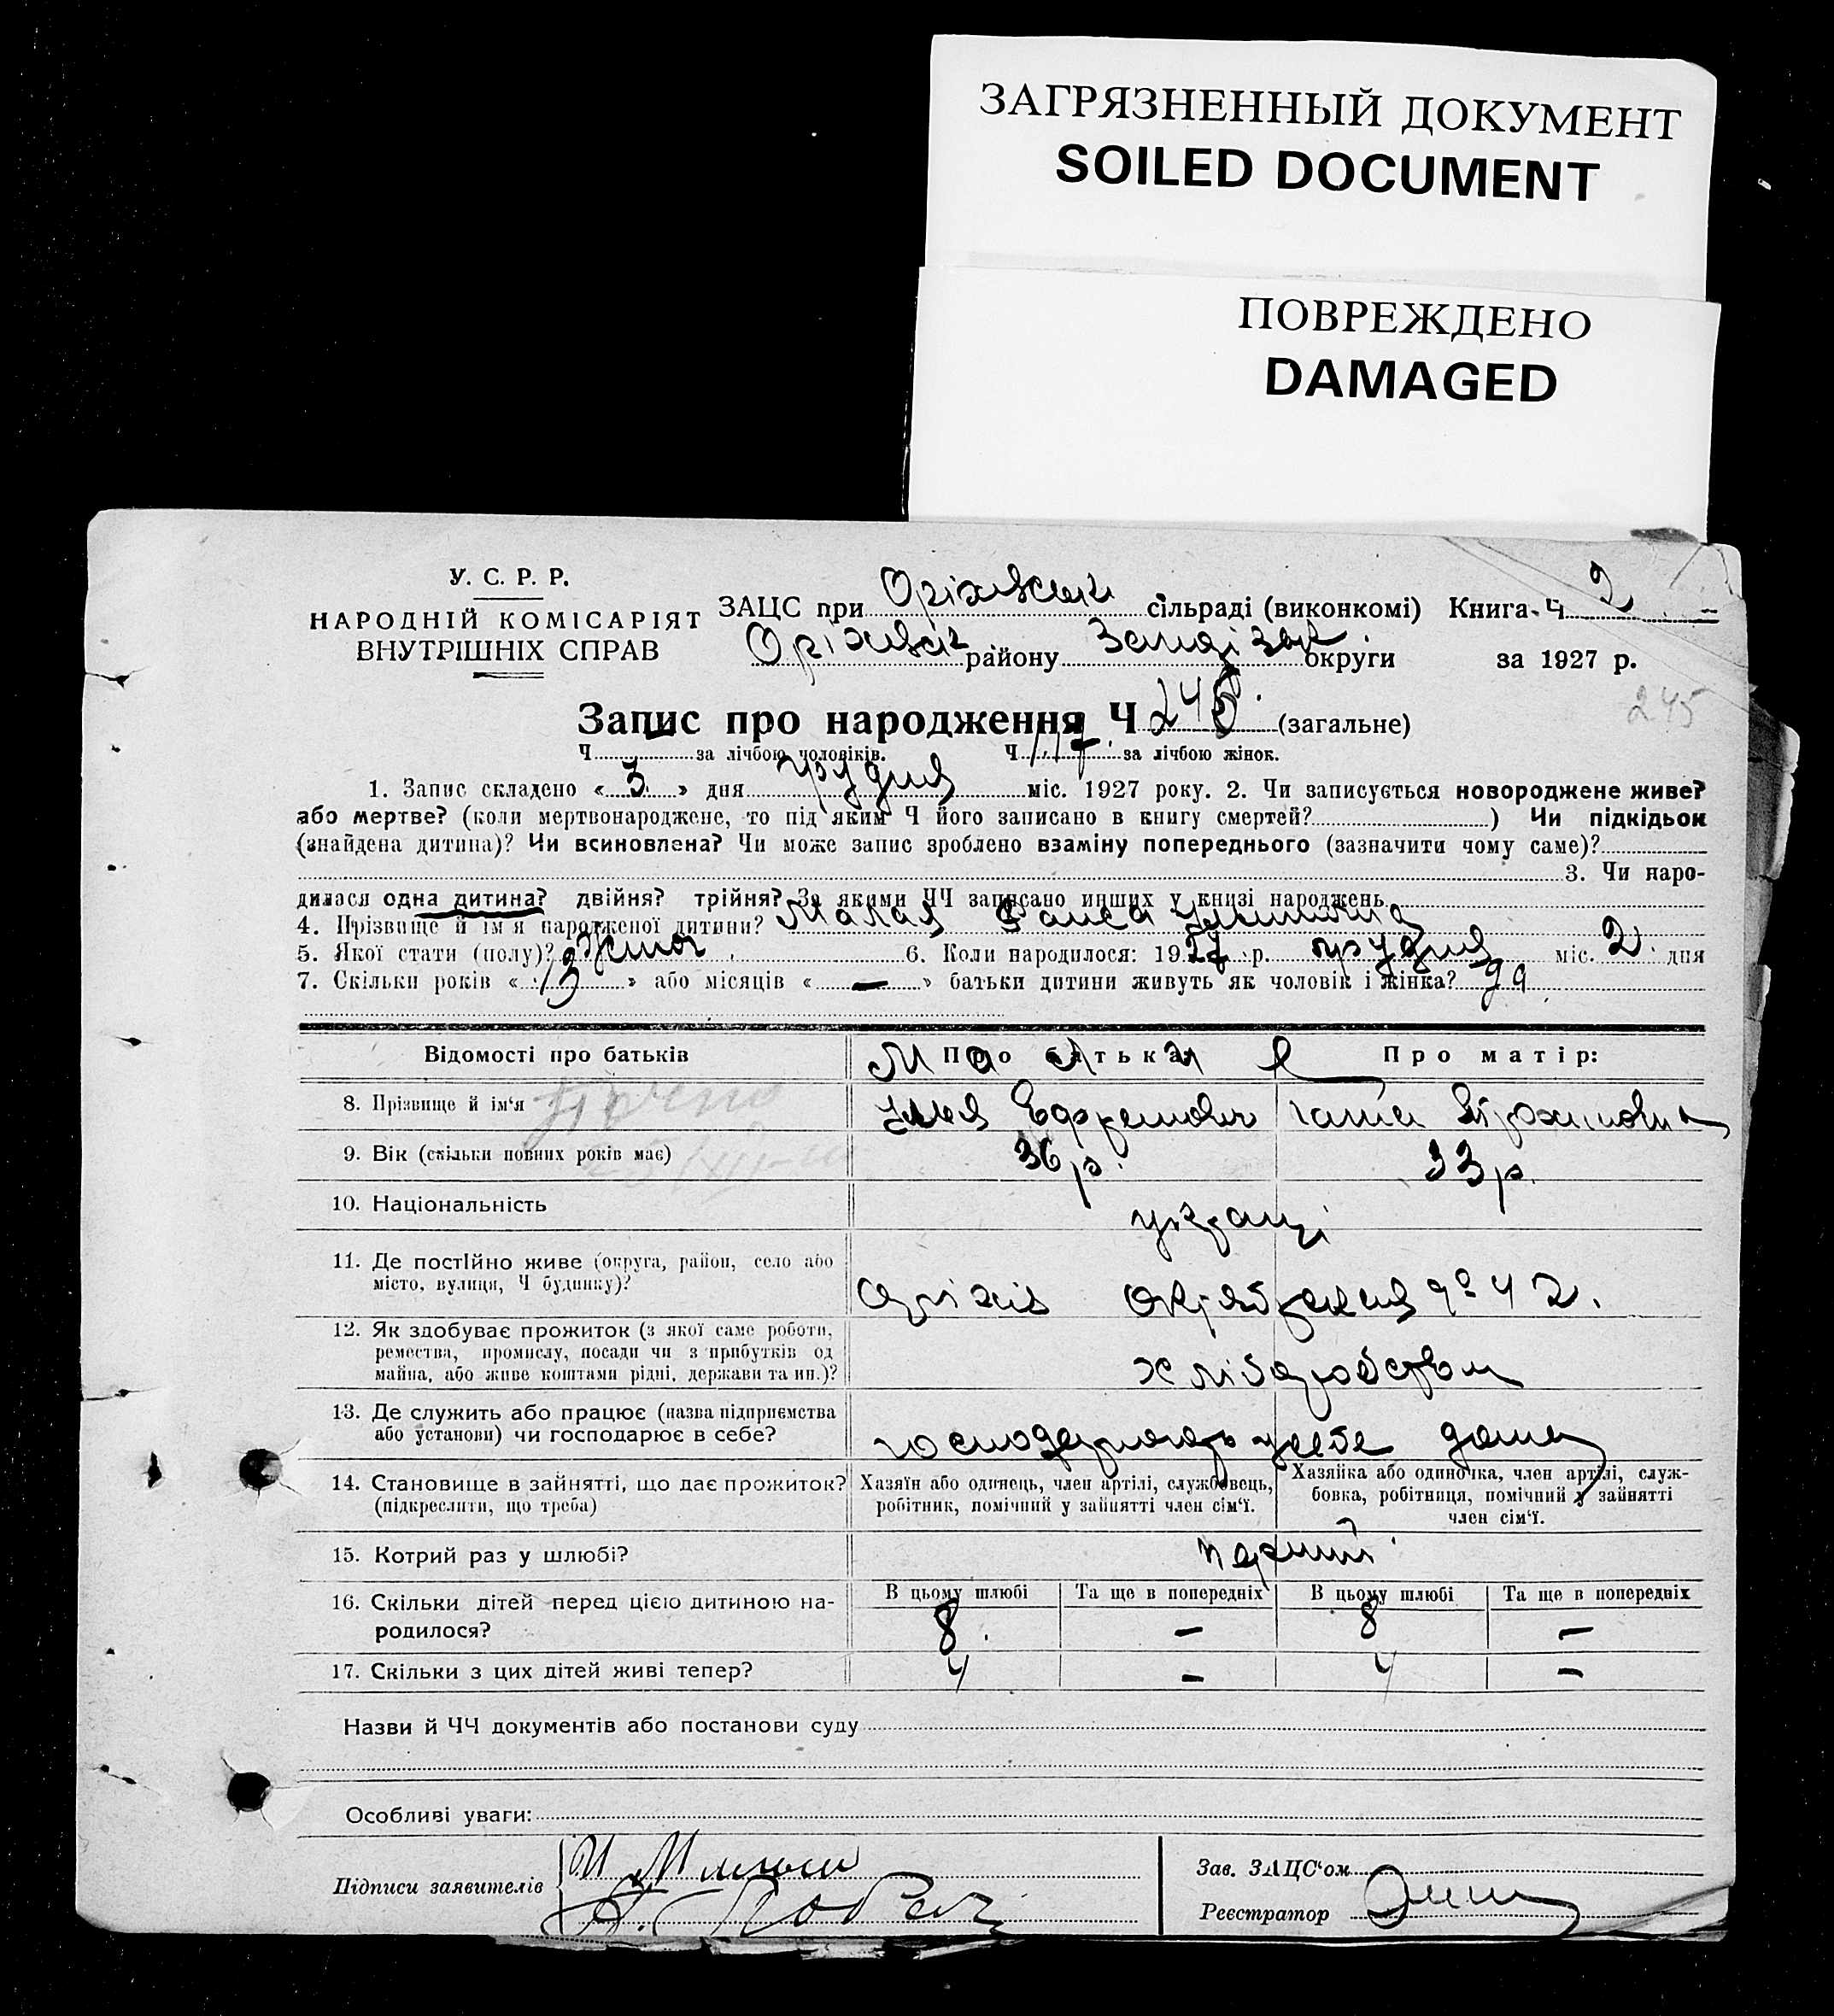 ЗАГРЯЗНЕННЫЙ ДОКУМЕНТ
SOILED DOCUMENT
ПОВРЕЖДЕНО
DAMAGED
У. С. Р. Р.
НАРОДНІЙ КОМІСАРІЯТ
ВНУТРІШНІХ СПРАВ
ЗАЦС при Оріхівськ сільраді (виконкомі) Книга Ч 2
Оріхівськ району округи за 1927 р.
245
Запис про народження Ч 245 (загальне)
Ч — за лічбою чоловіків. Ч 117 за лічбою жінок.
1. Запис складено « 3 » дня грудня міс. 1927 року. 2. Чи записується новороджене живе?
або мертве? (коли мертвонароджене, то під яким Ч його записано в книгу смертей? ) Чи підкідьок
(знайдена дитина)? Чи всиновлена? Чи може запис зроблено взаміну попереднього (зазначити чому саме)?
3. Чи наро-
дилася одна дитина? двійня? трійня? За якими ЧЧ записано инших у книзі народжень
4. Прізвище й ім'я народженої дитини? Малая Раиса
5. Якої стати (полу)? жіноч 6. Коли народилося: 1927 р. грудня міс. 2 дня
7. Скільки років « 13 » або місяців « — » батьки дитини живуть як чоловік і жінка?
Відомості про батьків Про батька: Про матір:
Малиє
8. Прізвище й ім'я Илья Ефремович Ганна
9. Вік (скільки повних років має) 36 р. 33 р.
10. Національність українці
11. Де постійно живе (округа, район, село або
місто, вулиця, Ч будинку)? Оріхів Октябрьская № 42.
12. Як здобуває прожиток (з якої саме роботи,
ремества, промислу, посади чи з прибутків од
майна, або живе коштами рідні, держави та ин.)? хліборобством
13. Де служить або працює (назва підприємства
або установи) чи господарює в себе? у себе дома
14. Становище в зайнятті, що дає прожиток?
(підкреслити, що треба)
Хазяїн або одинець, член артілі, службовець,
робітник, помічний у зайнятті член сім'ї.
Хазяйка або одиночка, член артілі, служ-
бовка, робітниця, помічний у зайнятті
член сім'ї.
15. Котрий раз у шлюбі? перший
В цьому шлюбі Та ще в попередніх В цьому шлюбі Та ще в попередніх
16. Скільки дітей перед цією дитиною на-
родилося? 8. — 8 —
17. Скільки з цих дітей живі тепер? 4 — 4 —
Назви й ЧЧ документів або постанови суду
Особливі уваги:
Підписи заявителів
Зав. ЗАЦС'ом
Реєстратор